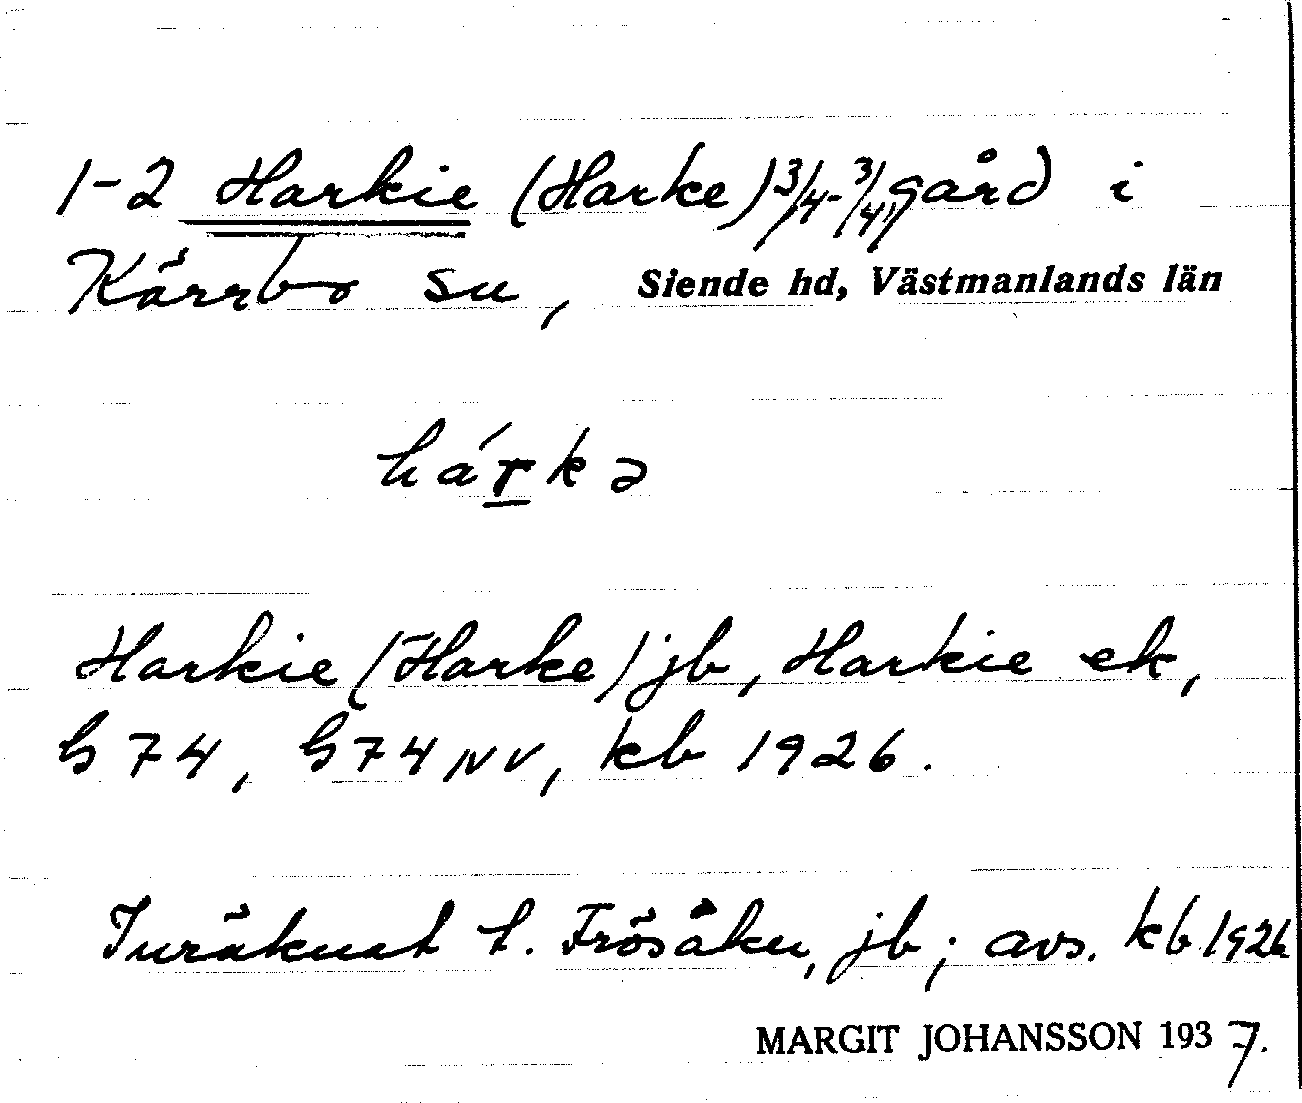 1-2 Harkie (Harke) 3/4-3/4, gård i
Kärrbo sn, Siende hd, Västmanlands län
hárkə
Harkie (Harke) jb, Harkie ek,
G 74, G 74 NV, kb 1926.
Inräknat t. Frösåker, jb; avs. kb 1926
MARGIT JOHANSSON 1937.